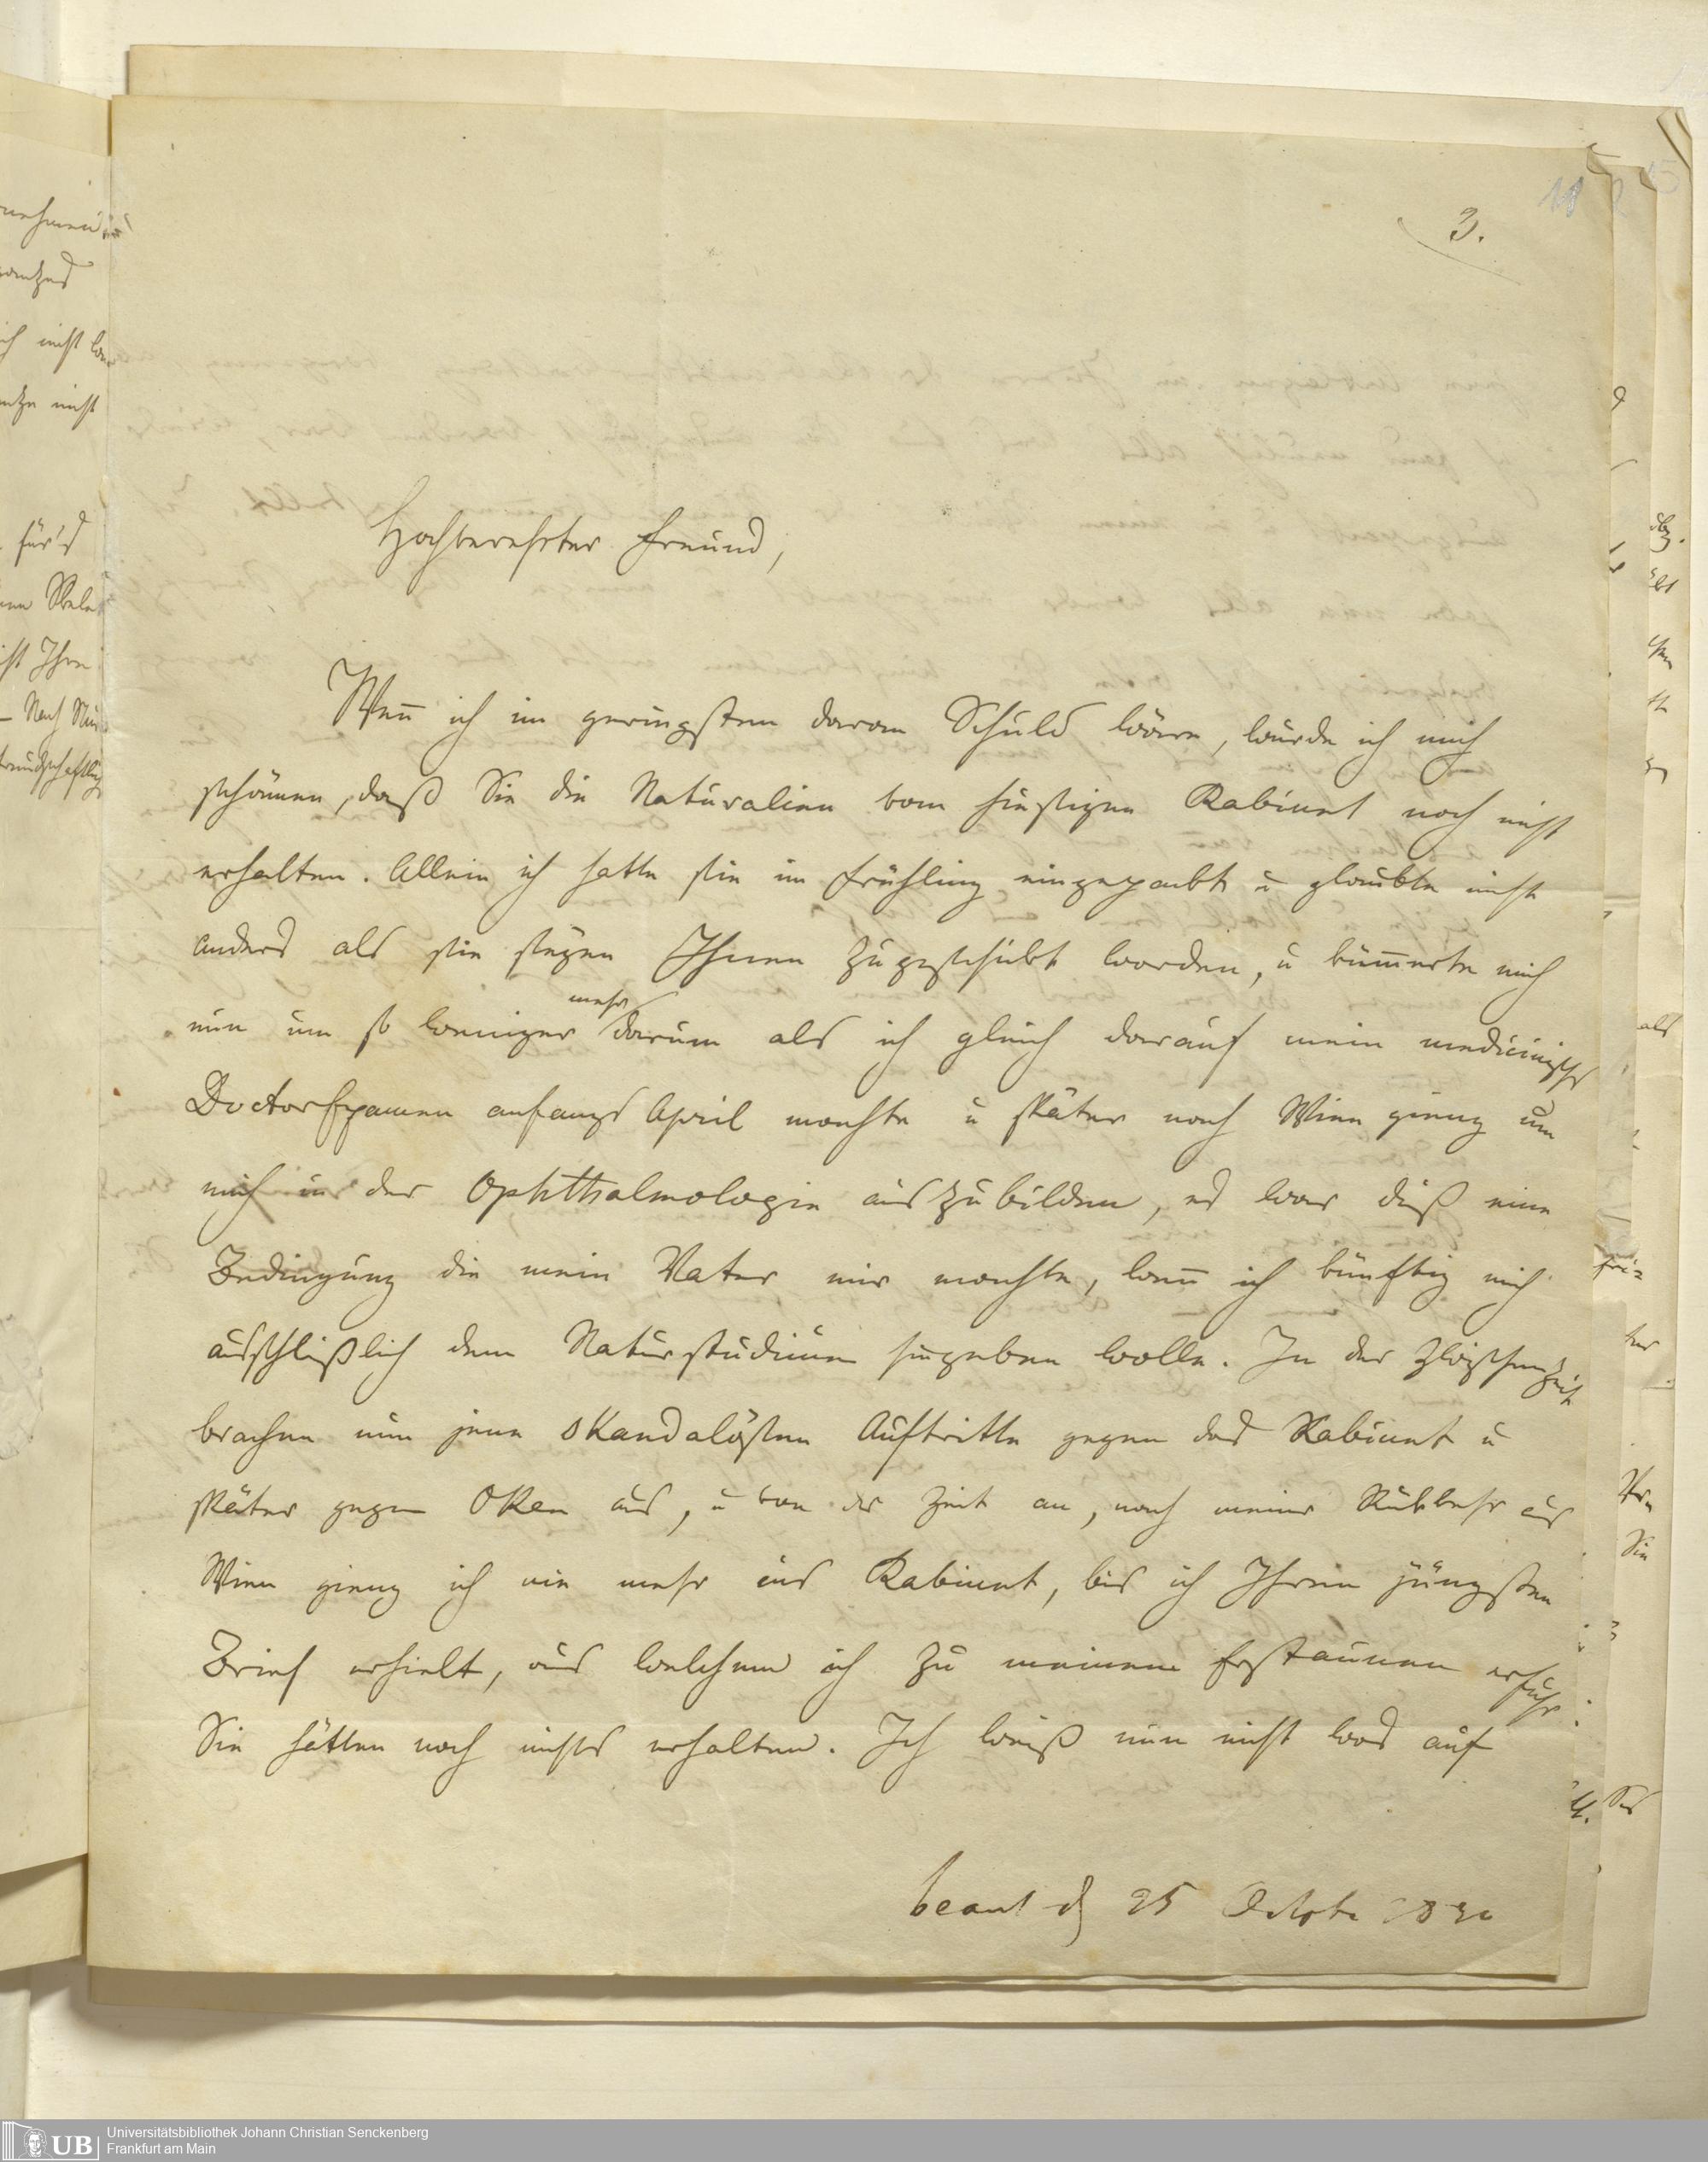 3.
Hochverehrter Freund,
Weñ ich im geringsten daran Schuld wäre, würde ich mich
schämen, daß Sie die Naturalien vom hiesigen Kabinet noch nicht
erhalten. Allein ich hatte sie im Frühling eingepackt u glaubte nicht
anders als sie seyen Ihnen zugeschickt worden, u küm̄erte mich
nun um so weniger mehr darum als ich gleich darauf mein medicinisches
Doctorexamen anfangs April machte u später nach Wien gieng um
mich in der Ophthalmologie auszubilden, es war dieß eine
Bedingung die mein Vater mir machte, wen̄ ich künftig mich
ausschließlich dem Naturstudium hingeben wolle. In der Zwischenzeit
brachen nun jene skandalösen Auftritte gegen das Kabinet u
später gegen Oken aus, u von der Zeit an, nach meiner Rückkehr aus
Wien gieng ich nie mehr ins Kabinet, bis ich Ihren jüngsten
Brief erhielt, aus welchem ich zu meinem Erstaunen erfuhr
Sie hätten noch nichts erhalten. Ich weiß nun nicht was auf
beant d 25 Octobe 1830
Universitätsbibliothek Johann Christian Senckenberg
Frankfurt am Main
UB